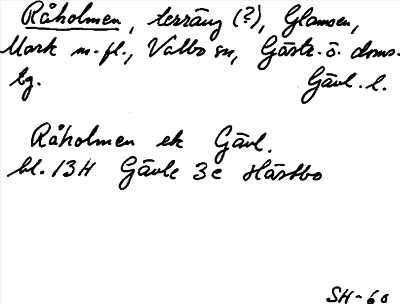 Råholmen, terräng (?), Glamsen,
Mark m.fl., Valbo sn, Gästr. ö. doms.
tg. Gävl. l.
Råholmen ek Gävl.
bl. 13H Gävle 3c Hästbo
SH-60